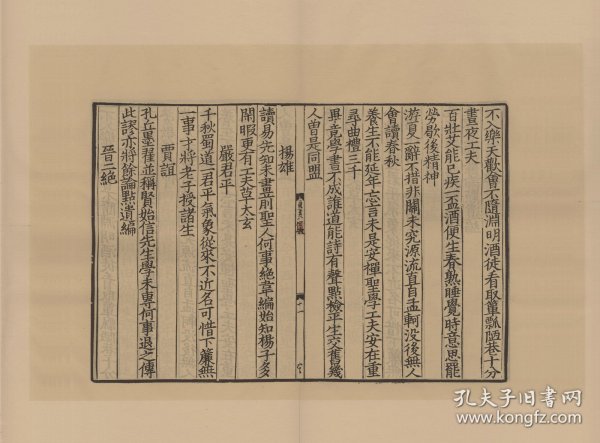 不樂天歡會不隨淵明酒徒看取簞瓢陋巷十分
晝夜工夫
百壯艾能已疾一盃酒便生春熟睡覺時意思罷
勞歇後精神
游夏一辭不措非關未究源流直自孟軻没後無人
會讀春秋
養生不能延年亡言未是安禪聖學工夫安在重
尋曲禮三千
畢竟學書不成誰道能詩有聲點檢平生交舊幾
人曽是同盟
揚雄
讀易先知未畫前聖人何事絶韋編始知楊子多
閑暇更有工夫草太玄
嚴君平
千秋蜀道一君平氣象從來不近名可惜下簾無
一事才將老子授諸生
賈誼
孔丘墨翟並稱賢始信先生學未專何事退之傳
此謬亦將餘論點遺編
晉二絶
孔夫子旧书网
www.kongfz.com